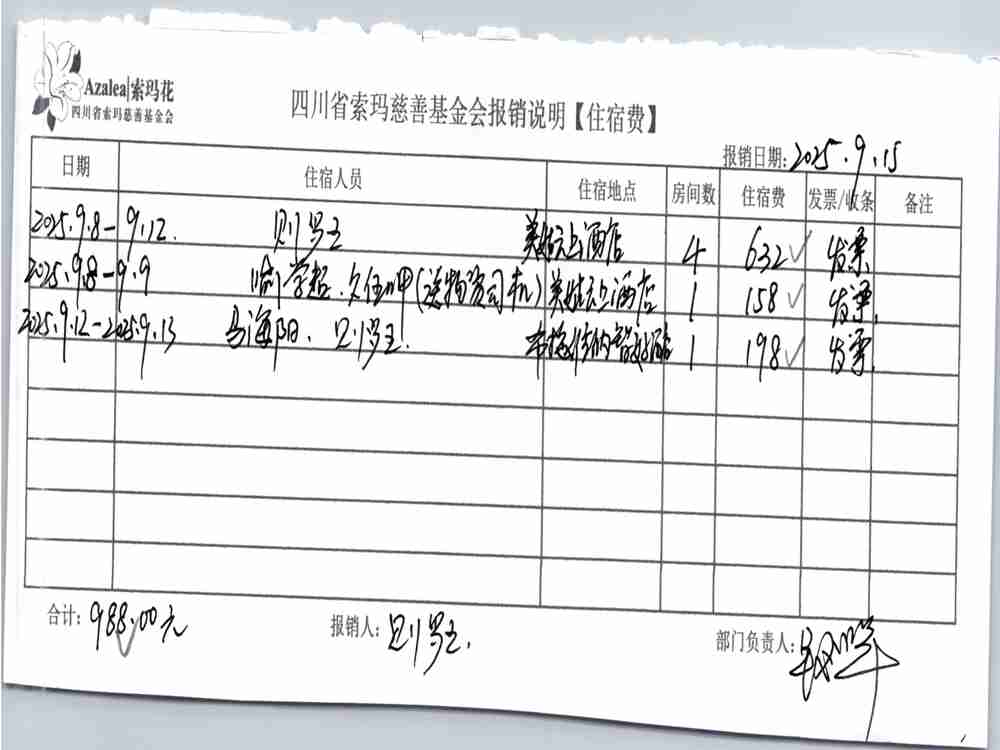 Azalea|索玛花
四川省索玛慈善基金会
四川省索玛慈善基金会报销说明【住宿费】
报销日期: 2025.9.15
日期 住宿人员 住宿地点 房间数 住宿费 发票/收条 备注
2025.9.8-9.12. 则罗主 美姑 酒店 4 632 发票
2025.9.8-9.9 学超. (送物资司机) 美姑 酒店 1 158 发票
2025.9.12-2025.9.13 马海阳、则罗主. 1 198 发票
合计: 988.00元 报销人: 则罗主. 部门负责人: